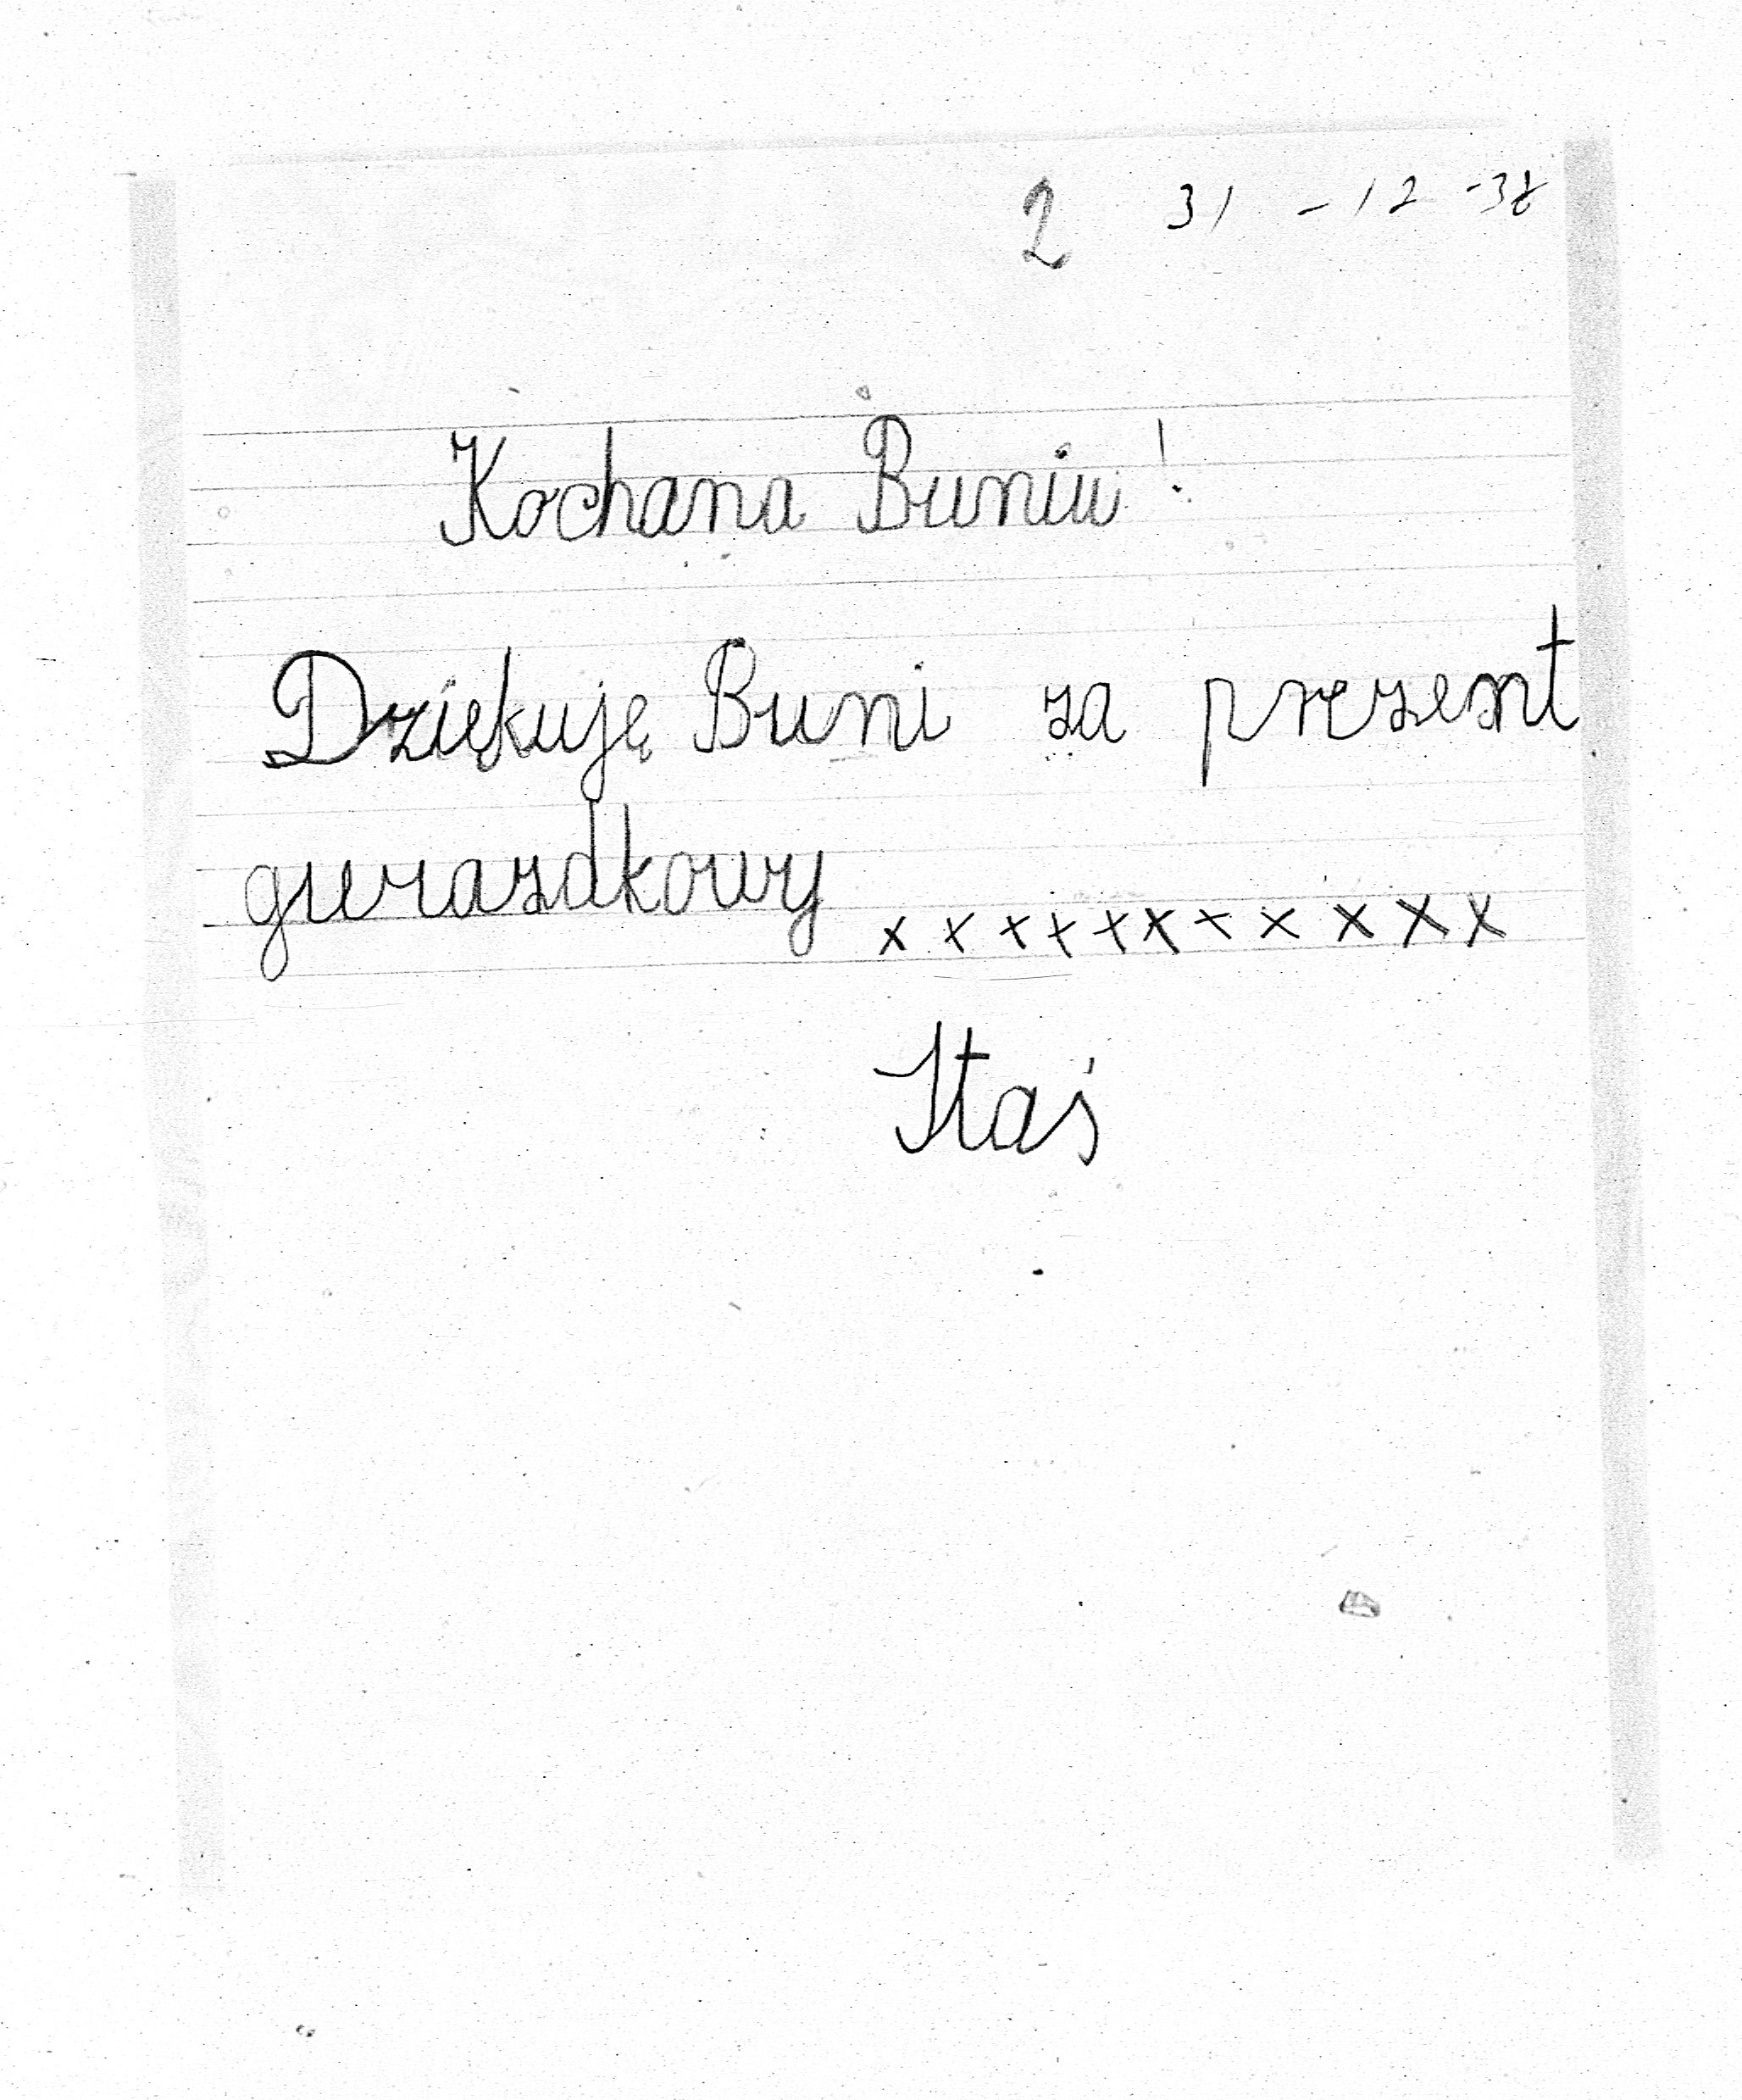 2 31 - 12 - 38
Kochana Buniu!
Dziękuję Buni za prezent
gwiazdkowy x x x x x x x x x x x
Staś